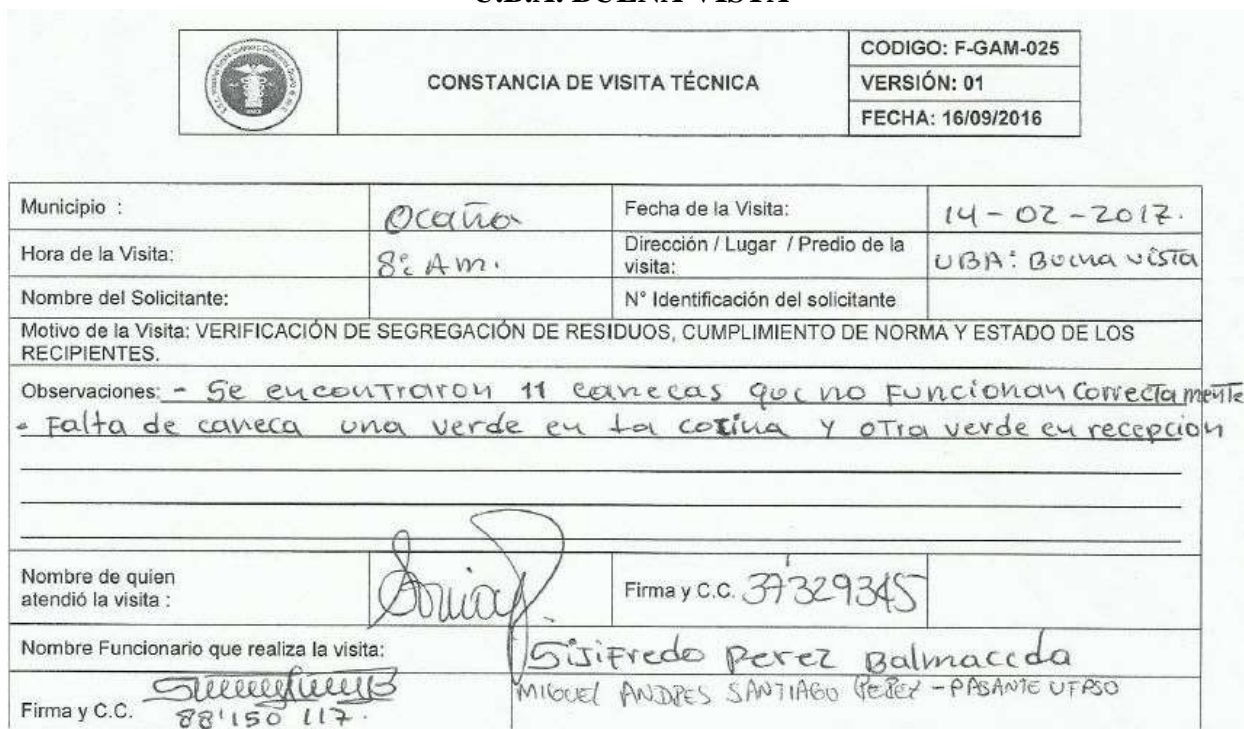 U.B.A. BUENA VISTA
CONSTANCIA DE VISITA TÉCNICA
CODIGO: F-GAM-025
VERSIÓN: 01
FECHA: 16/09/2016
Municipio : Ocaña Fecha de la Visita: 14-02-2017.
Hora de la Visita: 8: Am. Dirección / Lugar / Predio de la visita: UBA: Buena vista
Nombre del Solicitante: N° Identificación del solicitante
Motivo de la Visita: VERIFICACIÓN DE SEGREGACIÓN DE RESIDUOS, CUMPLIMIENTO DE NORMA Y ESTADO DE LOS
RECIPIENTES.
Observaciones: - Se encontraron 11 canecas que no Funcionan Correctamente
- Falta de caneca una verde en la cocina y otra verde en recepcion
Nombre de quien
atendió la visita : Firma y C.C. 37'329345
Nombre Funcionario que realiza la visita: Sijifredo Perez Balmaceda
MIGUEL ANDRES SANTIAGO PEREZ - PASANTE UFPSO
Firma y C.C. 88'150 117.